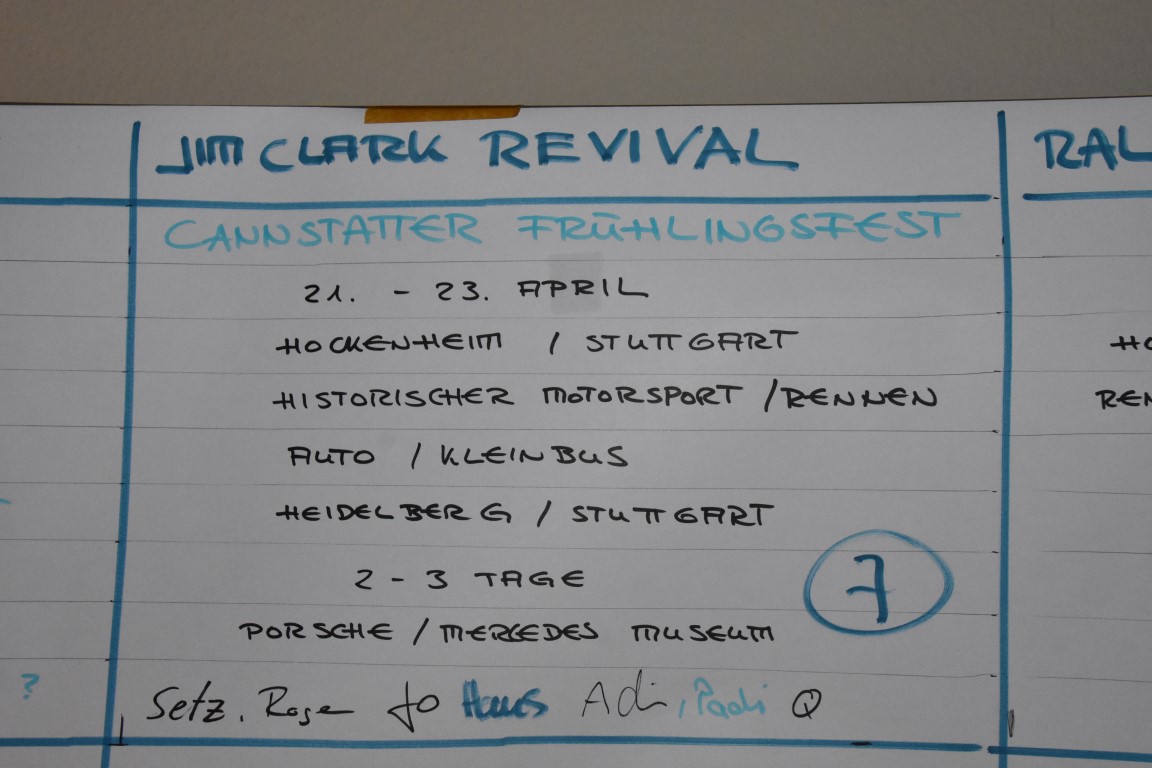 JIM CLARK REVIVAL
RAL
CANNSTATTER FRÜHLINGSFEST
21. - 23. APRIL
HOCKENHEIM / STUTTGART
HO
HISTORISCHER MOTORSPORT / RENNEN
REN
AUTO / KLEINBUS
HEIDELBERG / STUTTGART
2 - 3 TAGE
7
PORSCHE / MERCEDES MUSEUM
?
Setz, Roger Jo Hans Adi, Padi Q